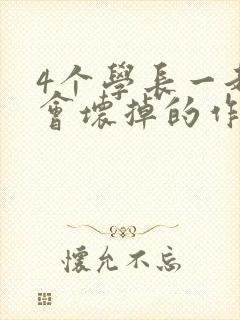 4个學長一
會壞掉的作
懷允不忘